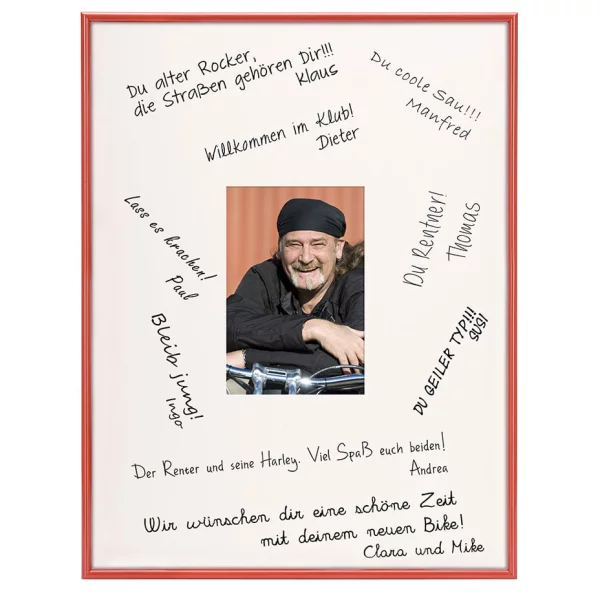 Du alter Rocker,
die Straßen gehören Dir!!!
Klaus
Du coole Sau!!!
Manfred
Willkommen im Klub!
Dieter
Lass es krachen!
Paul
Du Rentner!
Thomas
Bleib jung!
Ingo
DU GEILER TYP!!!
SUSI
Der Renter und seine Harley. Viel Spaß euch beiden!
Andrea
Wir wünschen dir eine schöne Zeit
mit deinem neuen Bike!
Clara und Mike